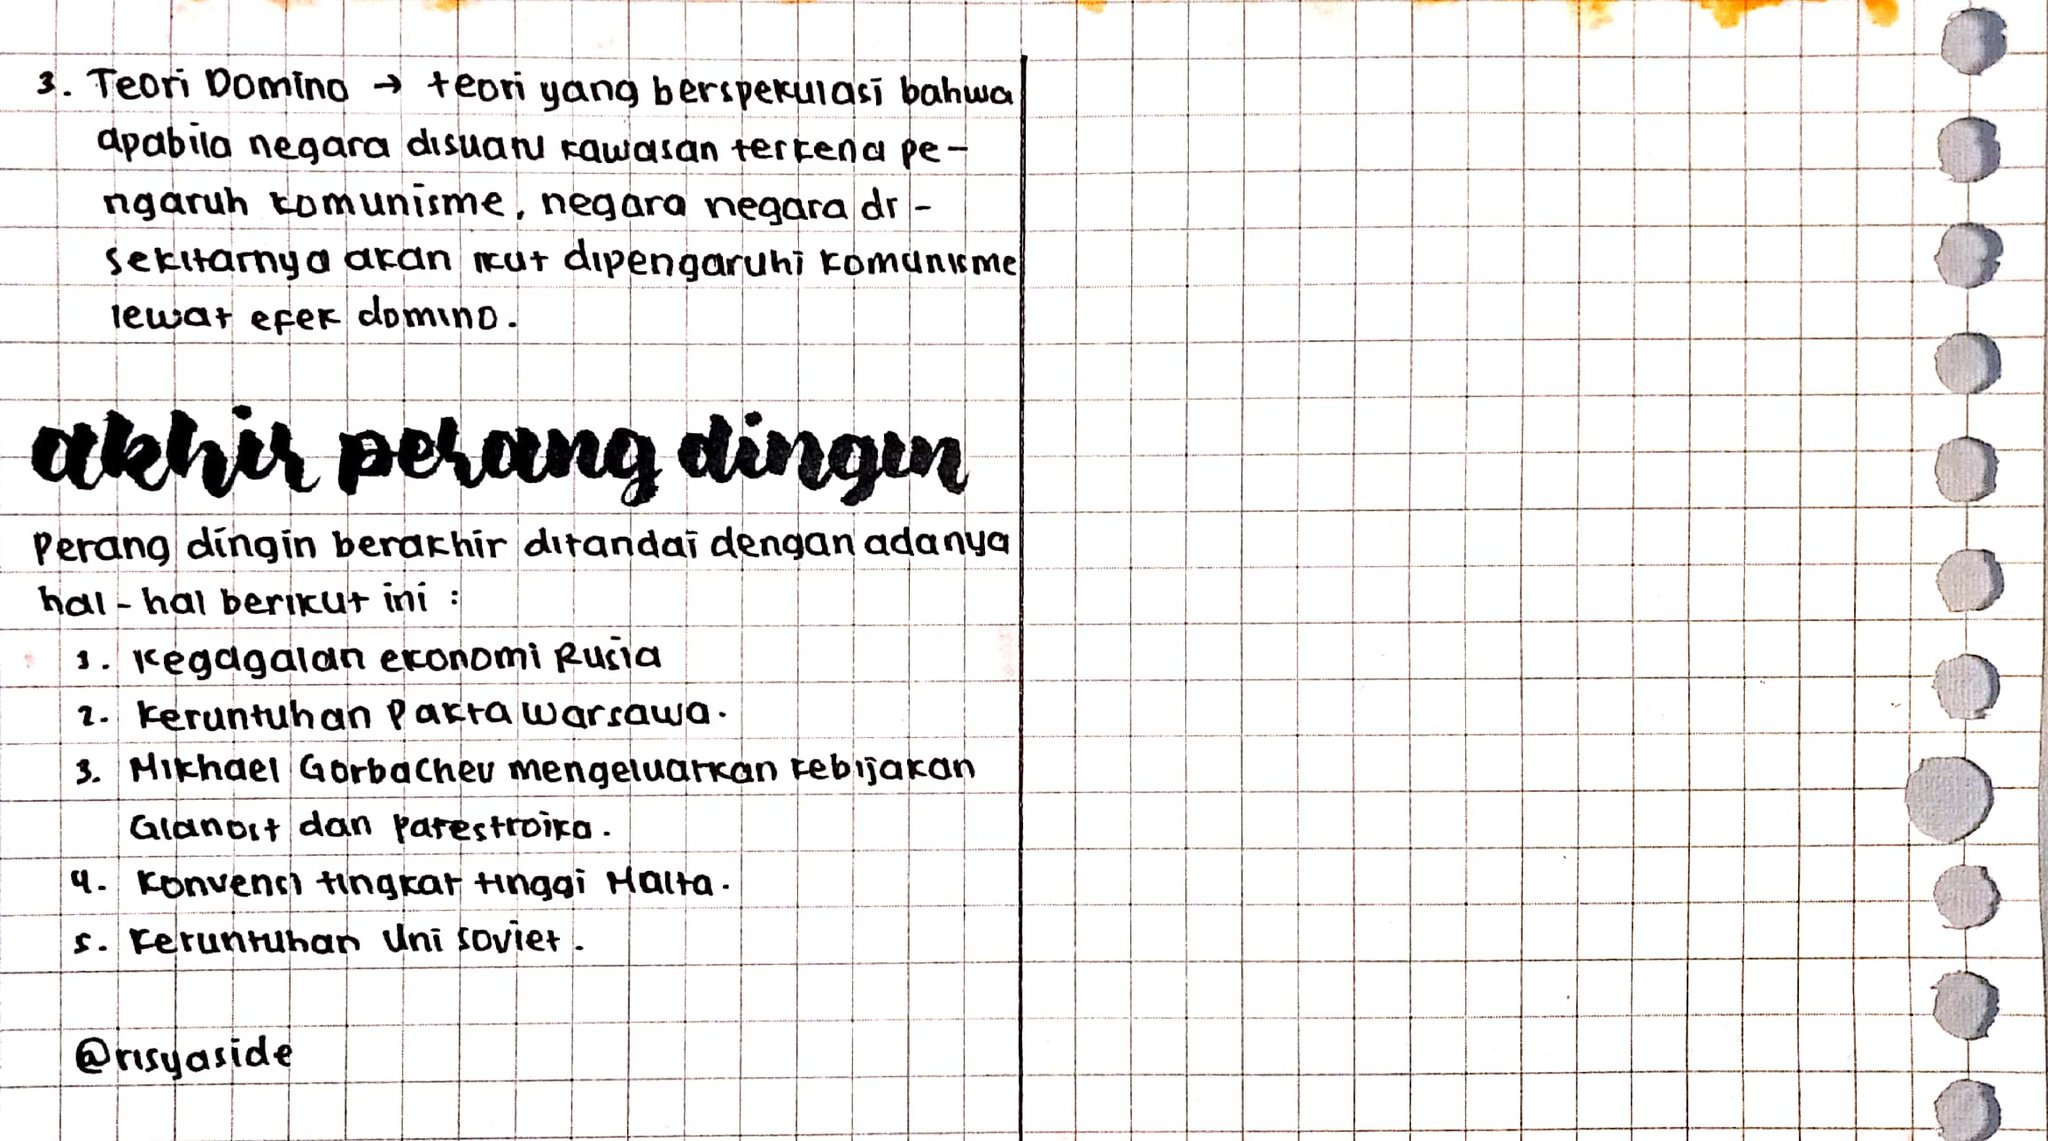 3. Teori Domino → teori yang berspekulasi bahwa
apabila negara disuatu kawasan terkena pe-
ngaruh komunisme, negara negara di-
sekitarnya akan ikut dipengaruhi komunisme
lewat efek domino.
akhir perang dingin
Perang dingin berakhir ditandai dengan adanya
hal-hal berikut ini :
1. Kegagalan ekonomi Rusia
2. Keruntuhan Pakta Warsawa.
3. Mikhael Gorbachev mengeluarkan kebijakan
Glanost dan parestroika.
4. Konvensi tingkat tinggi Malta.
5. Keruntuhan Uni Soviet.
@risyaside